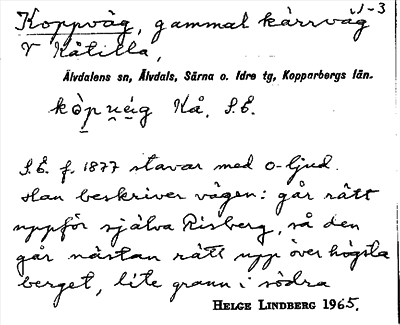 Koppväg, gammal kärrväg
V Kåtilla,
Älvdalens sn, Älvdals, Särna o. Idre tg, Kopparbergs län.
Kå. S.E.
S.E. f. 1877 stavar med o-ljud.
Han beskriver vägen: går rätt
uppför själva Risberg, så den
går nästan rätt upp över högsta
berget, lite grann i södra
HELGE LINDBERG 1965.